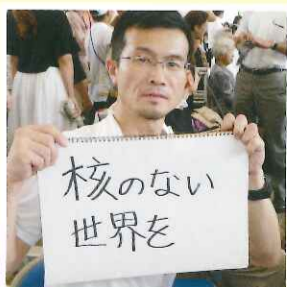 核のない
世界を